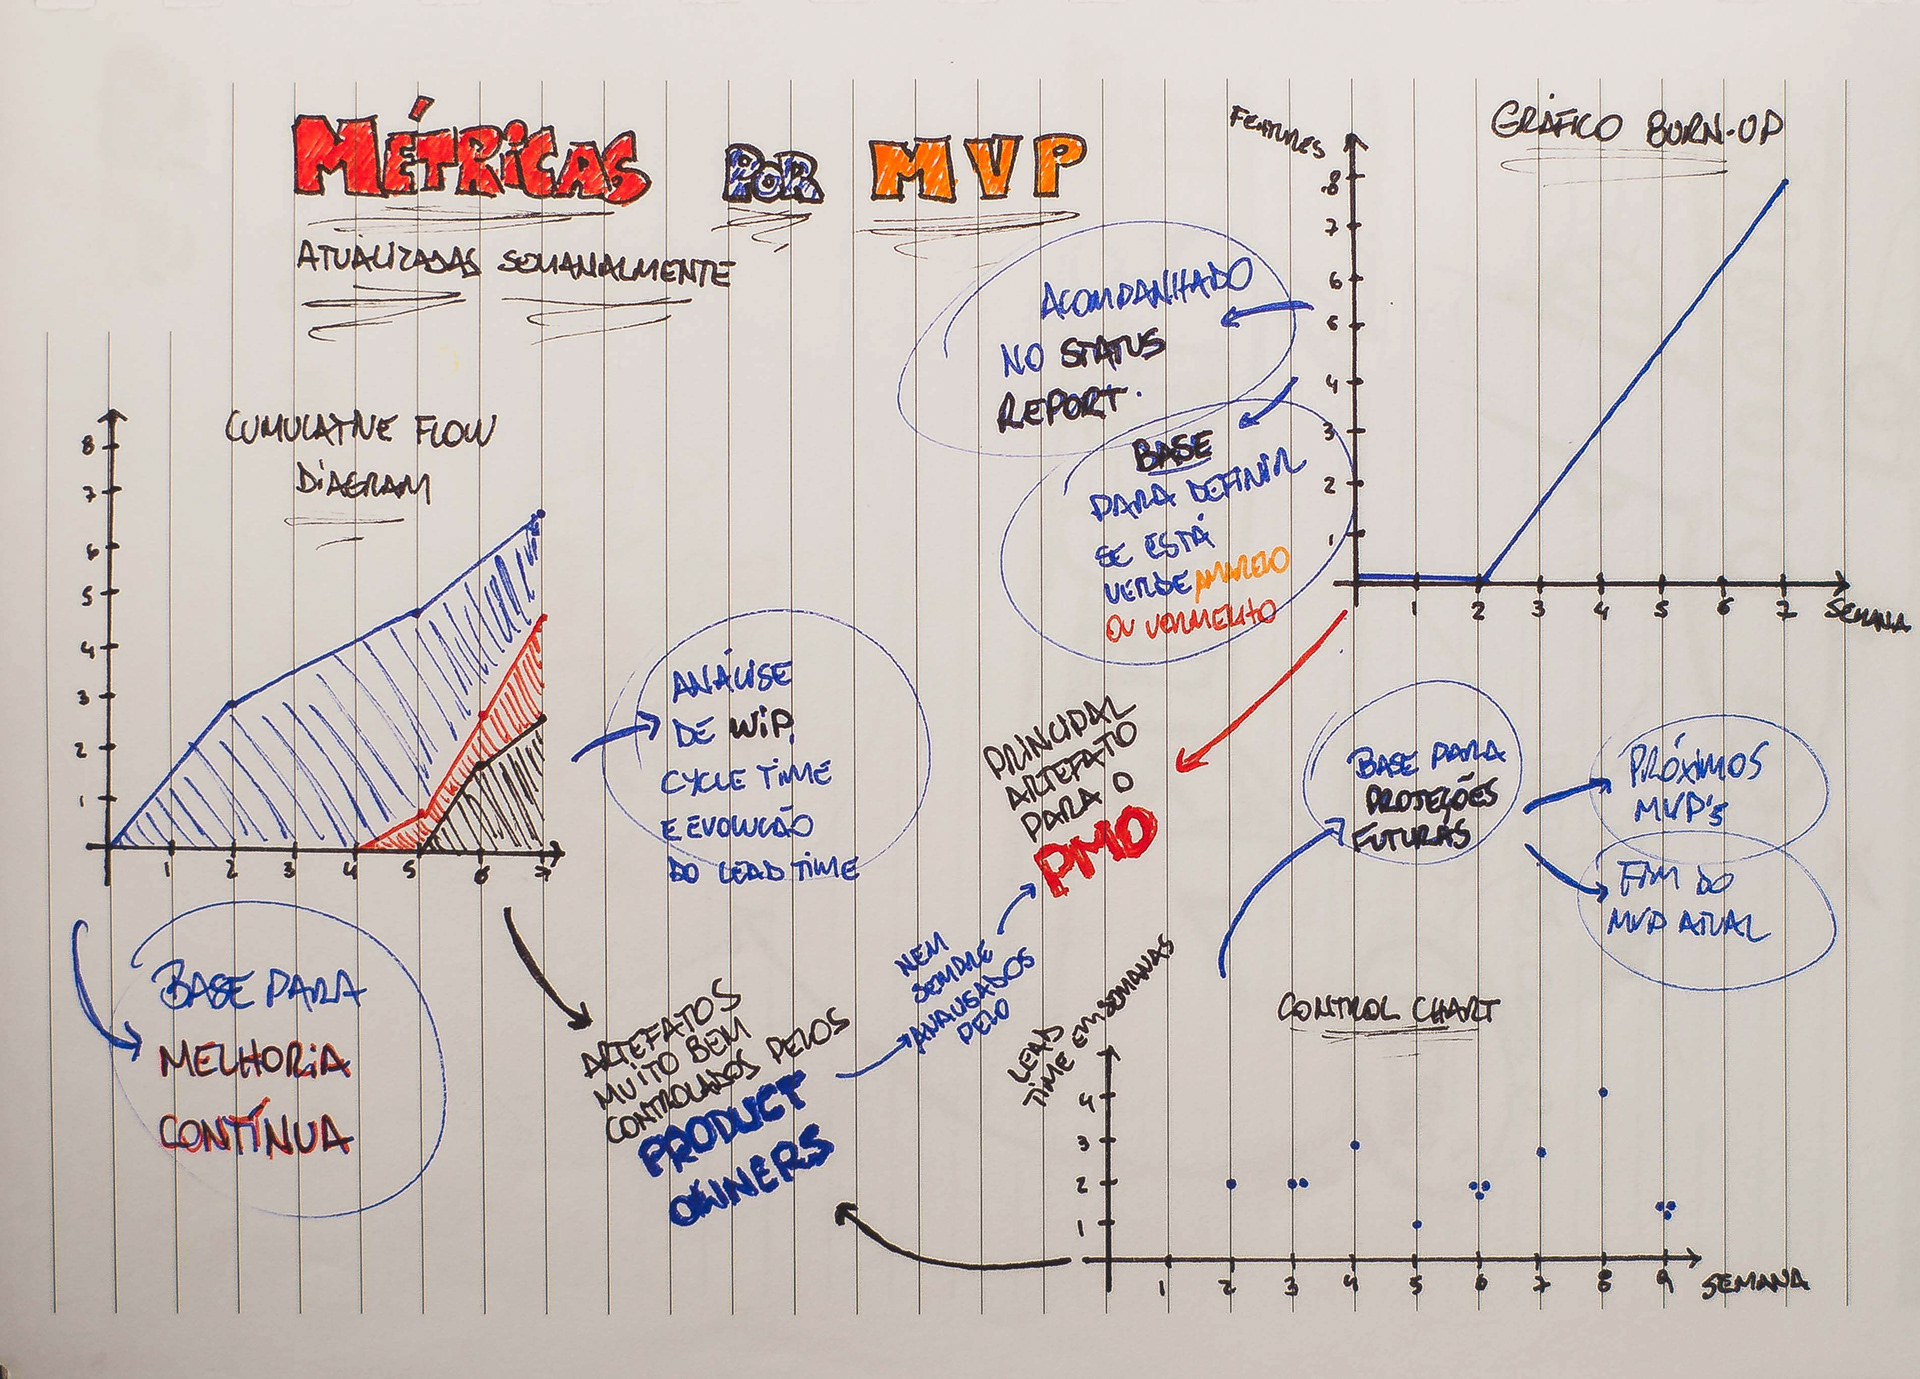 MÉTRICAS POR MVP
ATUALIZADAS SEMANALMENTE
CUMULATIVE FLOW
DIAGRAM
8
7
6
5
4
3
2
1
1 2 3 4 5 6 7
ANÁLISE
DE WIP,
CYCLE TIME
E EVOLUÇÃO
DO LEAD TIME
BASE PARA
MELHORIA
CONTÍNUA
ARTEFATOS
MUITO BEM
CONTROLADOS PELOS
PRODUCT
OWNERS
NEM
SEMPRE
ANALISADOS
PELO
PRINCIPAL
ARTEFATO
PARA O
PMO
ACOMPANHADO
NO STATUS
REPORT.
BASE
PARA DEFINIR
SE ESTÁ
VERDE AMARELO
OU VERMELHO
GRÁFICO BURN-UP
FEATURES
8
7
6
5
4
3
2
1
1 2 3 4 5 6 7 SEMANA
BASE PARA
PROJEÇÕES
FUTURAS
PRÓXIMOS
MVP'S
FIM DO
MVP ATUAL
CONTROL CHART
LEAD
TIME EM SEMANAS
4
3
2
1
1 2 3 4 5 6 7 8 9 SEMANA